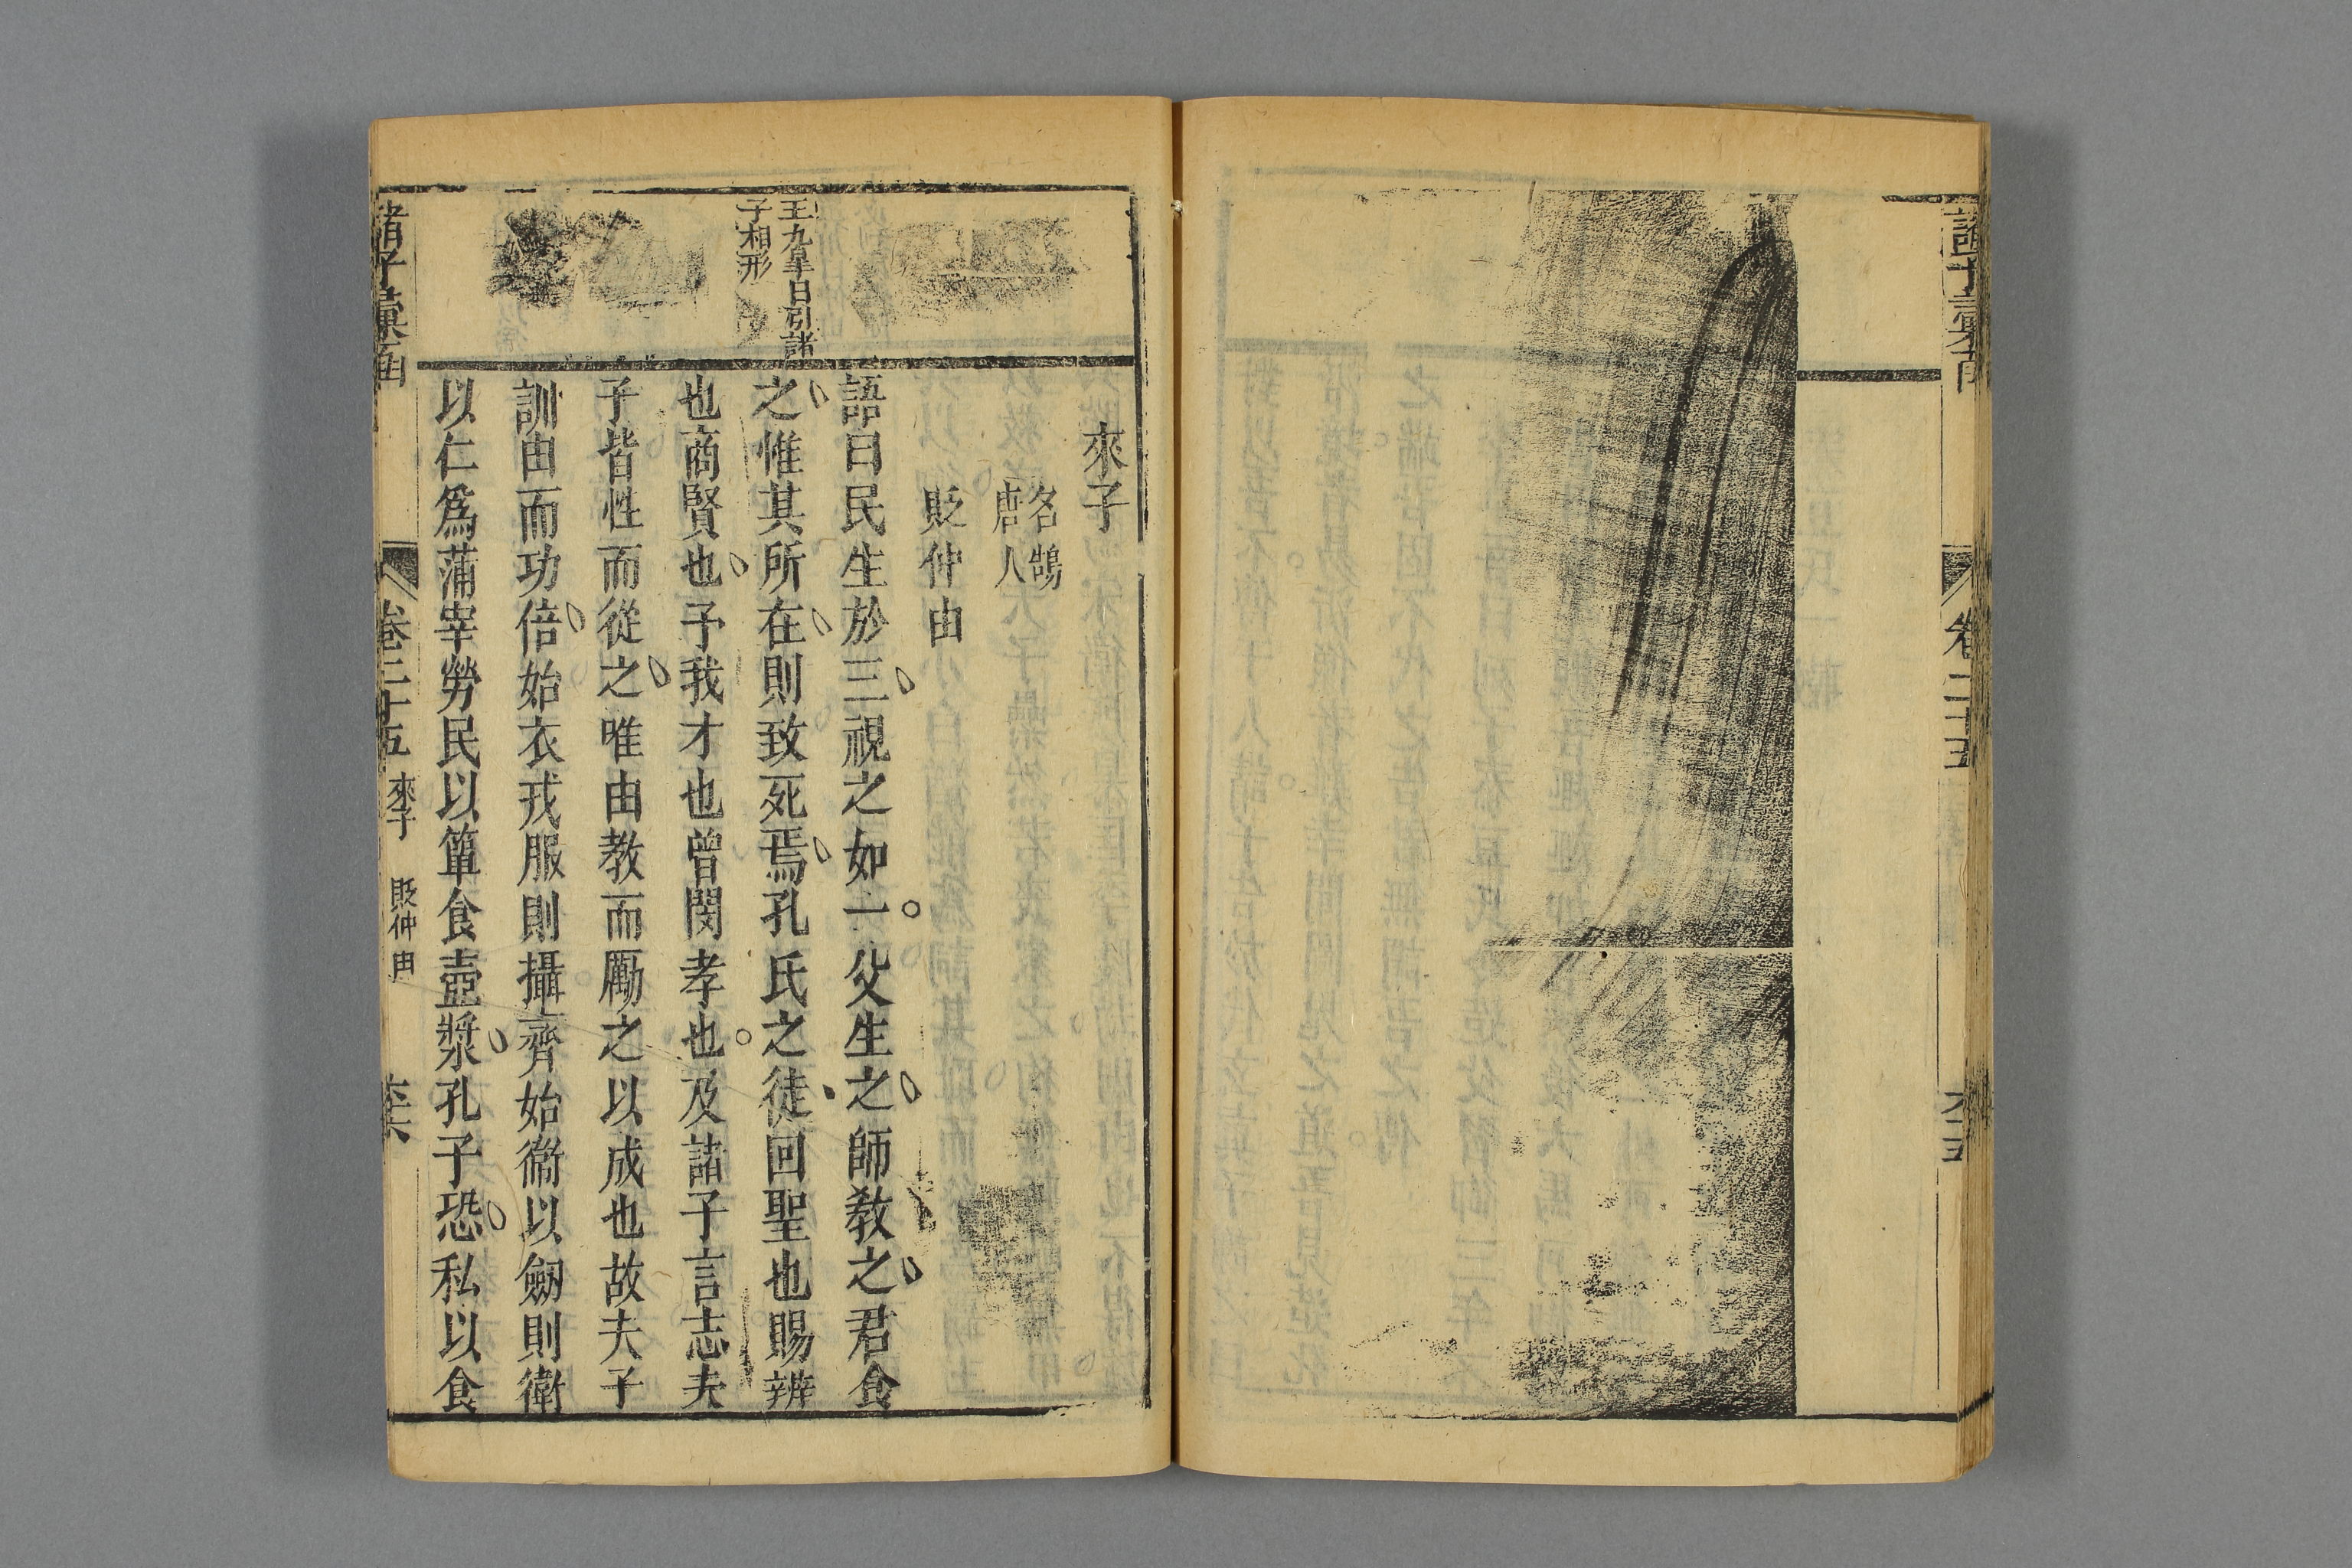 卷二十五
六十五
來子
名鵠
唐人
貶仲由
王九皐曰引諸
子相形
語曰民生於三視之如一父生之師教之君食
之惟其所在則致死焉孔氏之徒回聖也賜辨
也商賢也予我才也曾閔孝也及諸子言志夫
子皆性而從之唯由教而勵之以成也故夫子
訓由而功倍始衣戎服則攝齊始衞以劒則衛
以仁爲蒲宰勞民以簞食壺漿孔子恐私以食
諸子彚函
卷二十五
來子
貶仲由
六十六